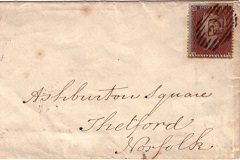 Ashburton Square
Thetford
Norfolk